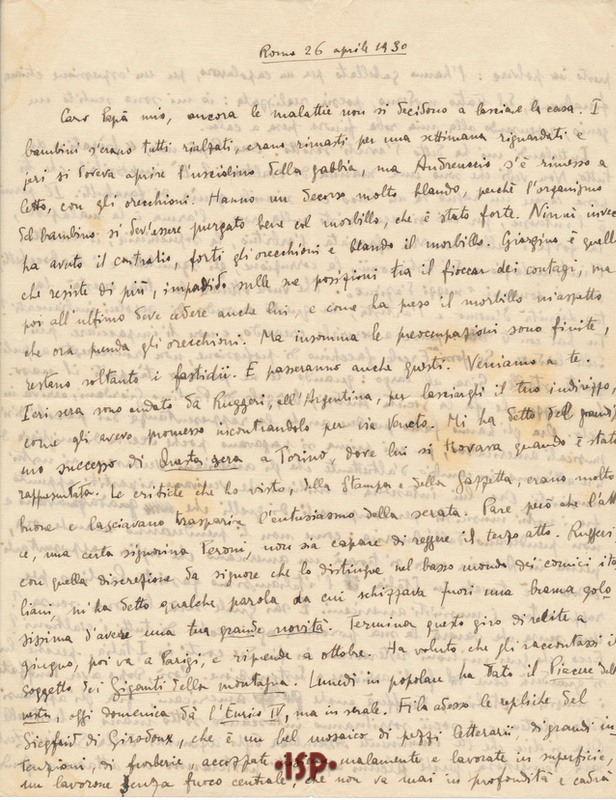 Roma 26 aprile 1930
Caro Papà mio, ancora le malattie non si decidono a lasciare la casa. I
bambini s'erano tutti rialzati, erano rimasti per una settimana riguardati e
jeri si doveva aprire l'usciolino della gabbia, ma Andreuccio s'è rimesso a
letto, con gli orecchioni. Hanno un decorso molto blando, perché l'organismo
del bambino si dev'essere purgato bene col morbillo, che è stato forte. Ninnì invece
ha avuto il contrario, forti gli orecchioni e blando il morbillo. Giorgino è quello
che resiste di più, impavido sulle sue posizioni tra il fioccar dei contagi, ma
poi all'ultimo deve cedere anche lui, e come ha preso il morbillo m'aspetto
che ora prenda gli orecchioni. Ma insomma le preoccupazioni sono finite,
restano soltanto i fastidii. E passeranno anche questi. Veniamo a te.
Ieri sera sono andato da Ruggeri, all'Argentina, per lasciargli il tuo indirizzo,
come gli avevo promesso incontrandolo per via Veneto. Mi ha detto del grandis
mo successo di Questa sera a Torino, dove lui si trovava quando è stata
rappresentata. Le critiche che ho visto, della Stampa e della Gazzetta, erano molto
buone e lasciavano trasparire l'entusiasmo della serata. Pare però che l'attri
ce, una certa signorina Peroni, non sia capace di reggere il terzo atto. Ruggeri
con quella discrezione da signore che lo distingue nel basso mondo dei comici ita
liani, m'ha detto qualche parola da cui schizzava fuori una brama golo
sissima d'avere una tua grande novità. Termina questo giro di recite a
giugno, poi va a Parigi, e riprende a ottobre. Ha voluto che gli raccontassi il
soggetto dei Giganti della montagna. Lunedì in popolare ha dato il Piacere dell'o
nestà, oggi domenica dà l'Enrico IV, ma in serale. Fila adesso le repliche del
Siegfrid di Giraudoux, che è un bel mosaico di pezzi letterarii di grandi in
tenzioni, di furberie, accozzate malamente e lavorate in superficie,
un lavorone senza fuoco centrale, che non va mai in profondità e cadrà
·ISP·